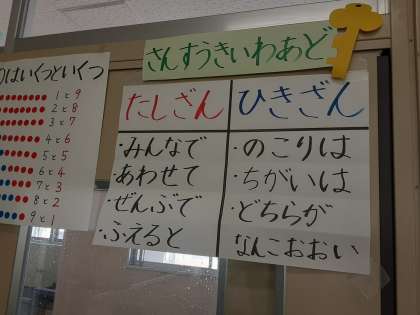 りはいくつといくつ
1と9
2と8
3と7
4と6
5と5
6と4
7と3
8と2
9と1
さんすうきいわあど
たしざん
・みんなで
・あわせて
・ぜんぶで
・ふえると
ひきざん
・のこりは
・ちがいは
・どちらが
なんこおおい